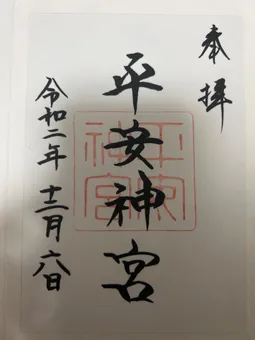 奉拝
平安神宮
平安神宮
令和二年 十二月 六日